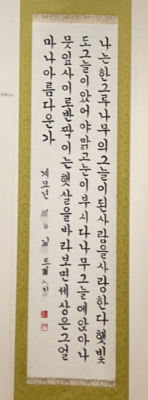 나는한그루나무의그늘이된사람을사랑한다햇빛
도그늘이있어야맑고눈이부시다나무그늘에앉아나
뭇잎사이로반짝이는햇살을바라보면세상은그얼
마나아름다운가
계묘년